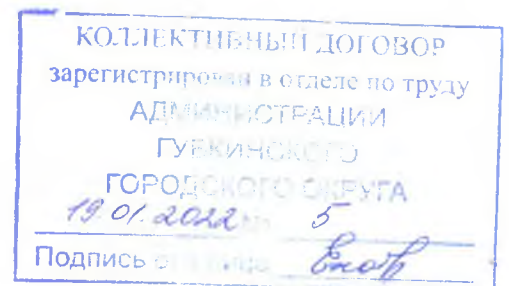 КОЛЛЕКТИВНЫЙ ДОГОВОР
зарегистрирован в отделе по труду
АДМИНИСТРАЦИИ
ГУБКИНСКОГО
ГОРОДСКОГО ОКРУГА
19.01.2022 5
Подпись